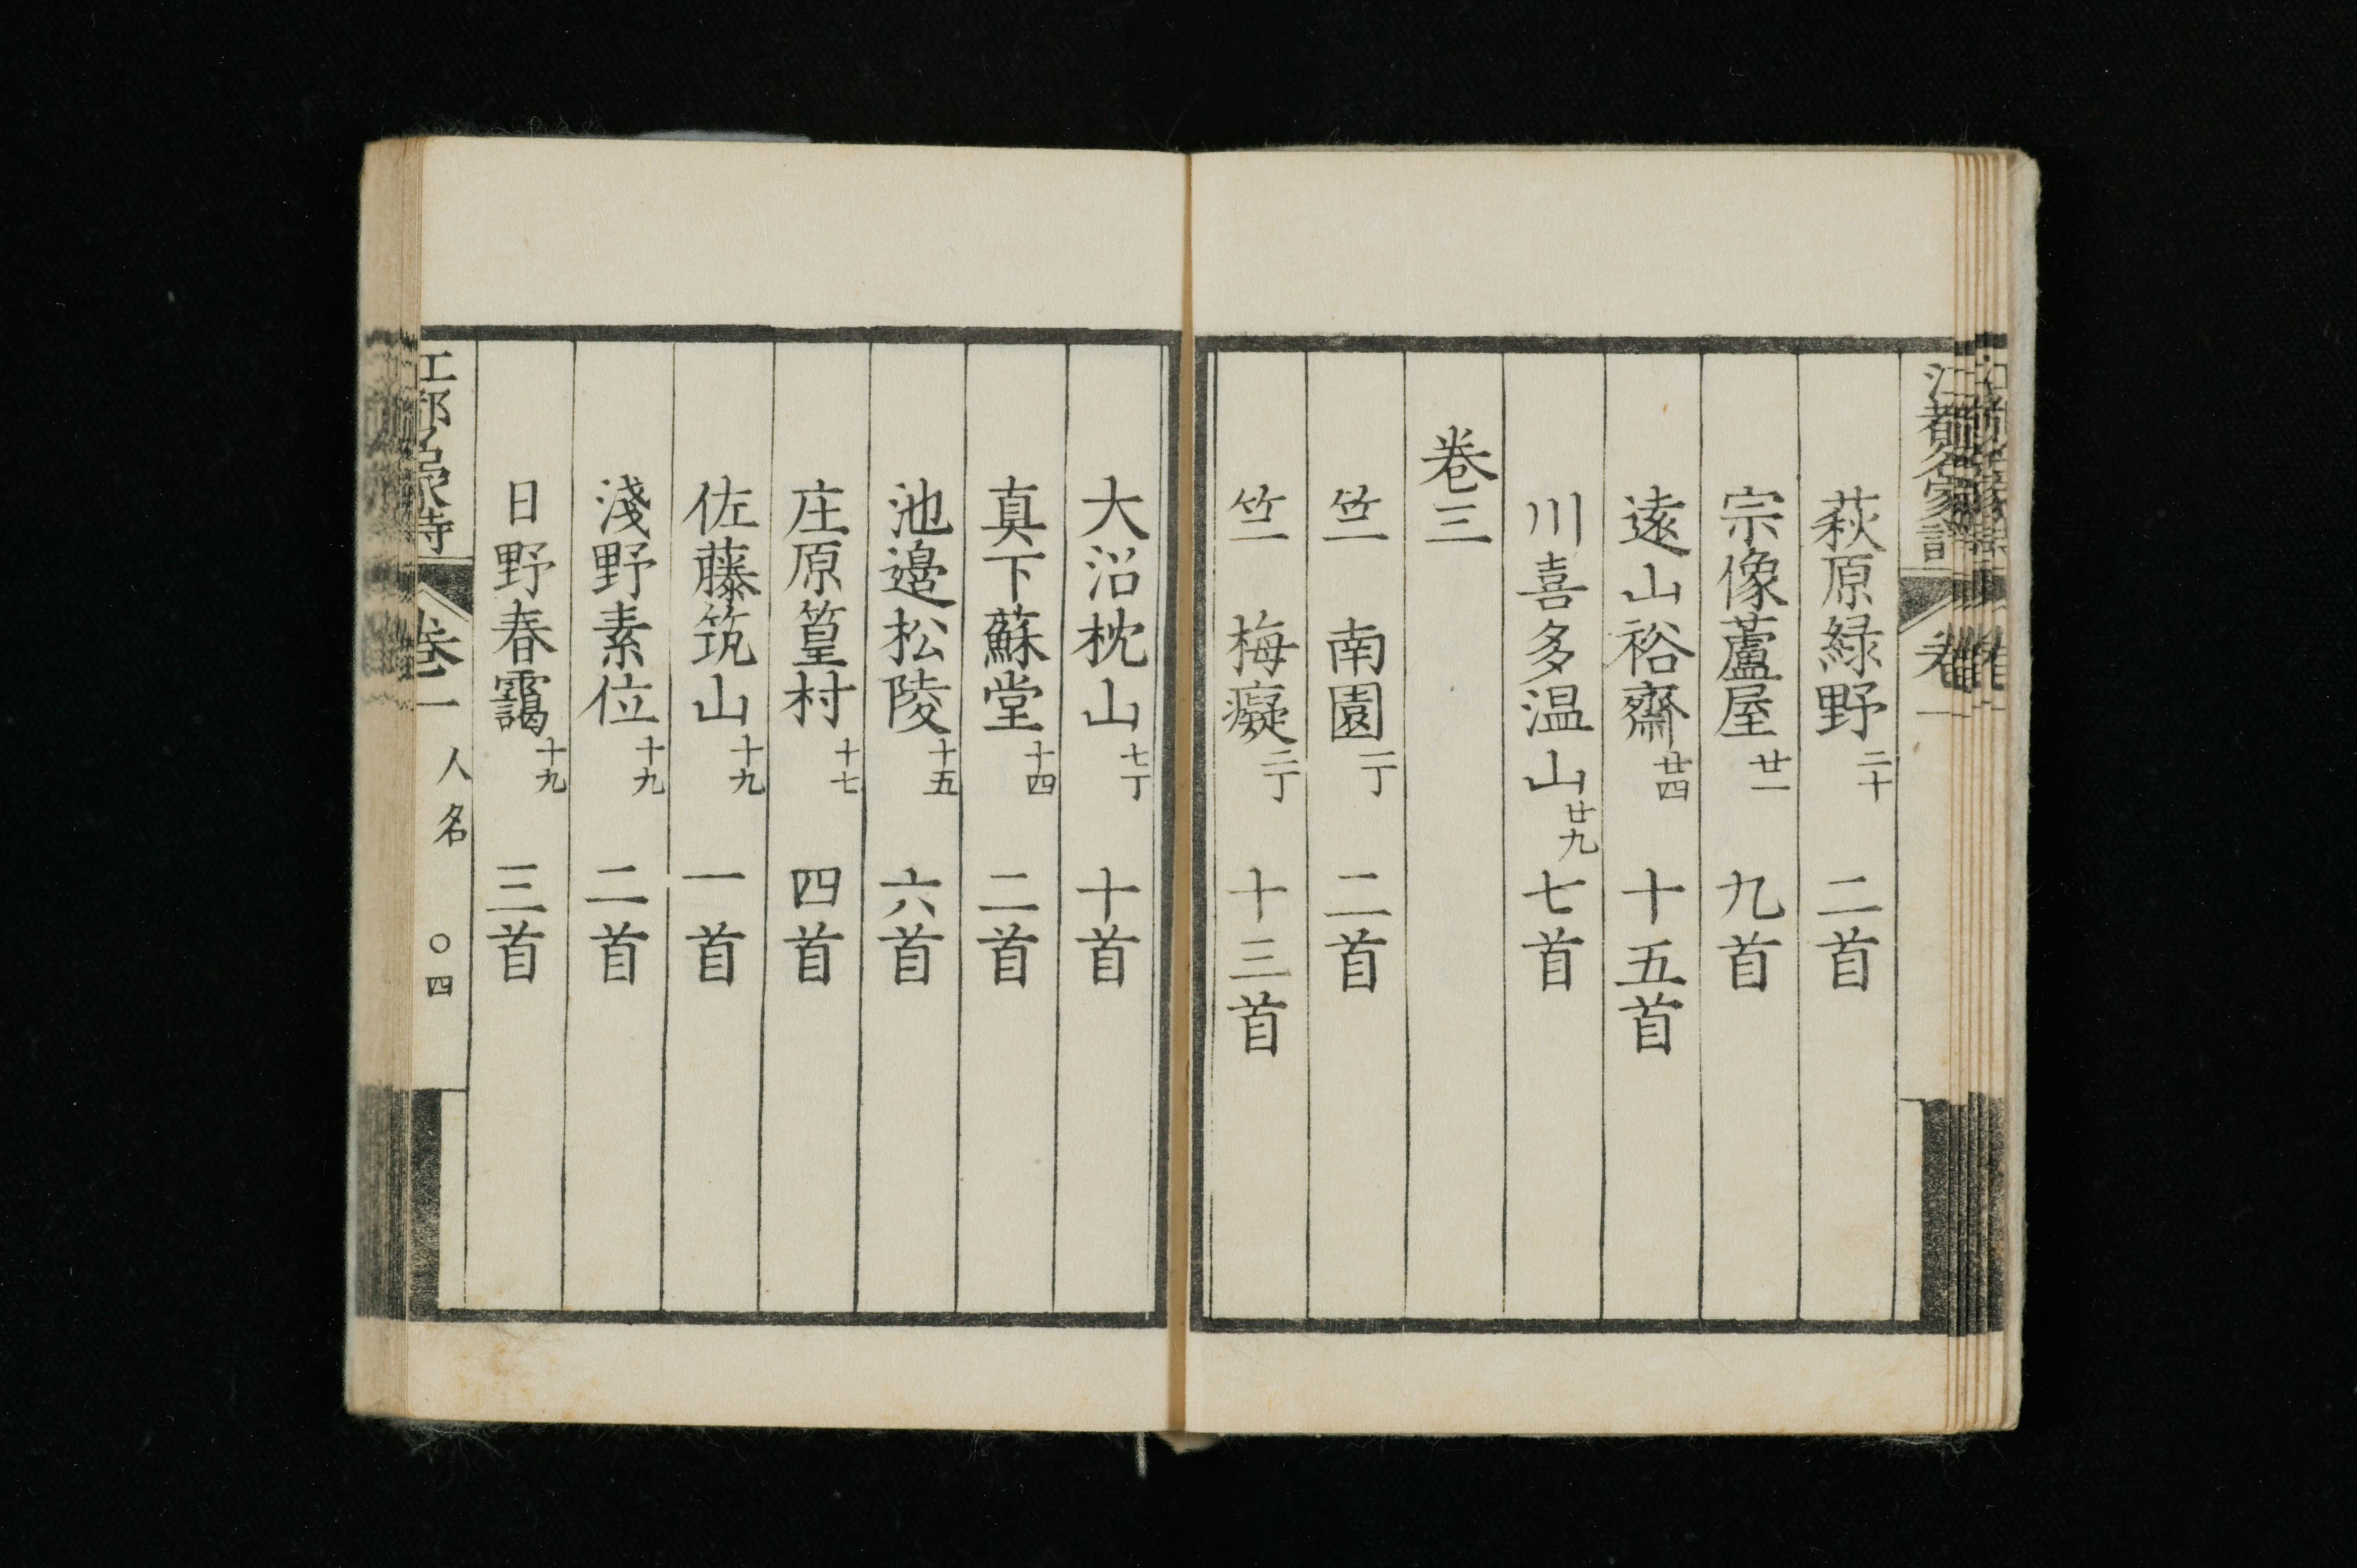 萩原緑野二十 二首
宗像蘆屋廿一 九首
遠山裕齋廿四 十五首
川喜多温山廿九 七首
卷三
竺 南園一丁 二首
竺 梅癡二丁 十三首
大沼枕山七丁 十首
真下蘇堂十四 二首
池邉松陵十五 六首
庄原篁村十七 四首
佐藤筑山十九 一首
淺野素位十九 二首
日野春靄十九 三首
江都名家詩 卷一 人名 〇四